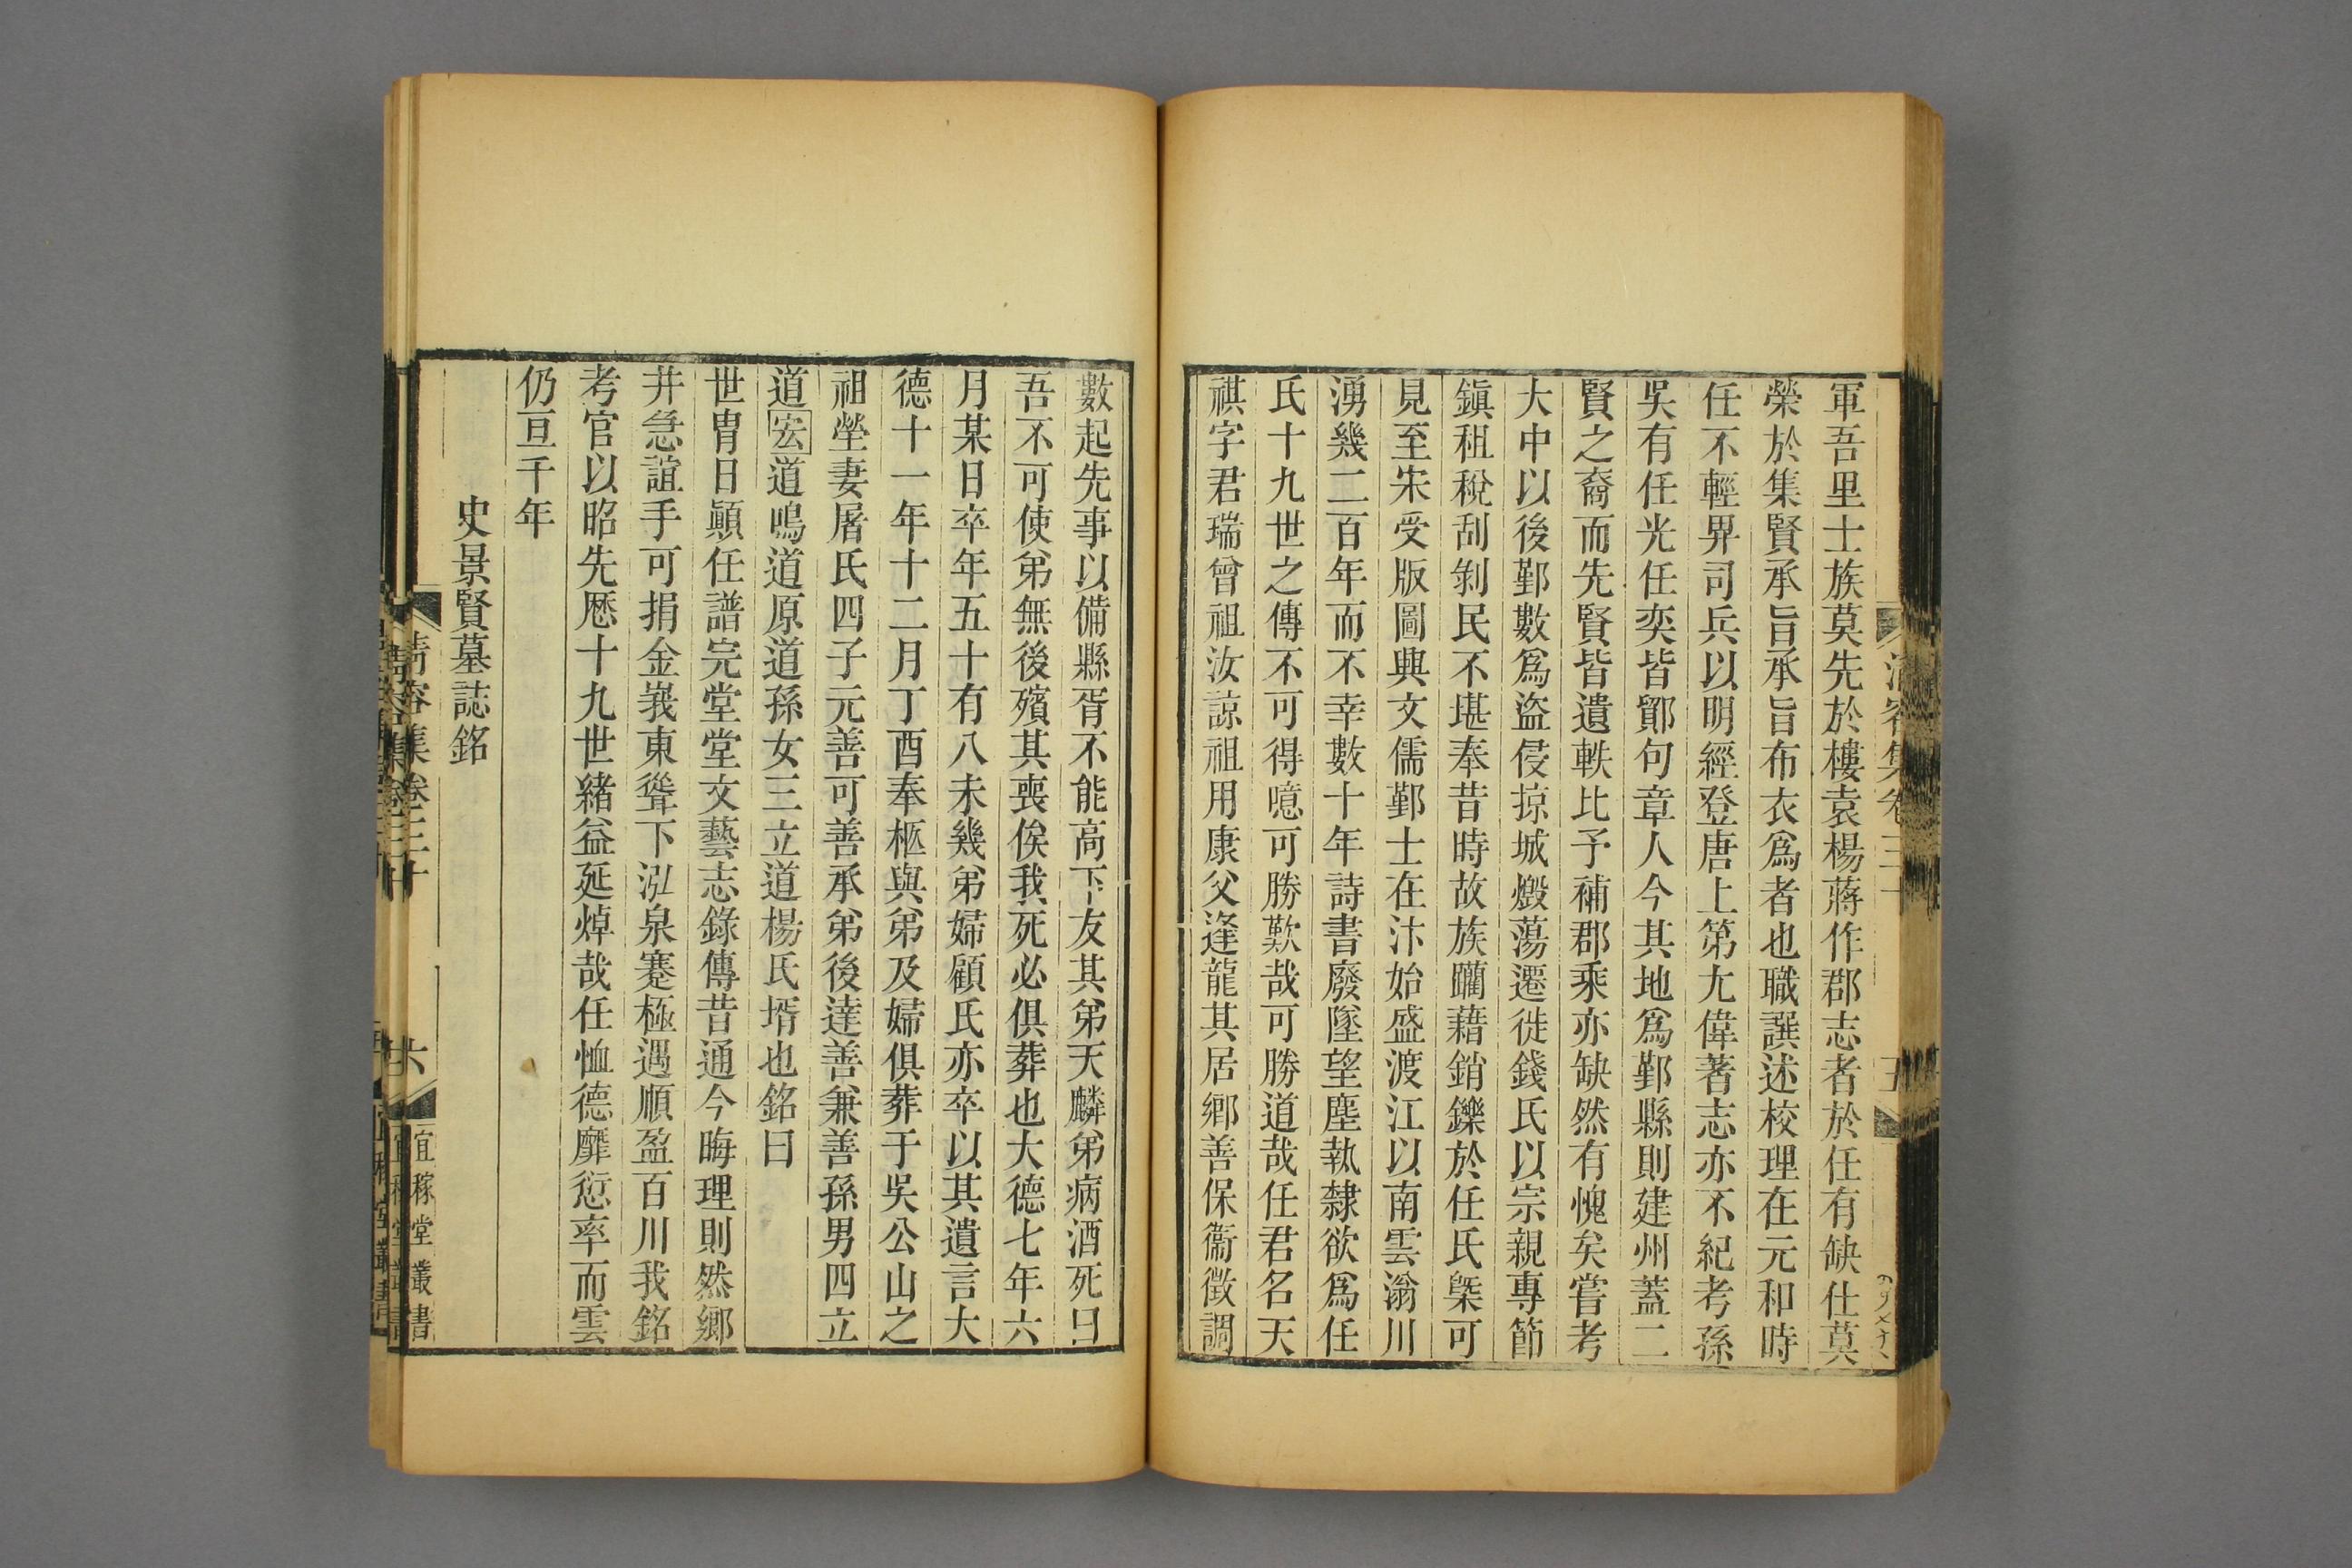 軍吾里士族莫先於樓袁楊蔣作郡志者於任有缺仕莫
榮於集賢承旨承旨布衣爲者也職譔述校理在元和時
任不輕畀司兵以明經登唐上第尢偉著志亦不紀考孫
吳有任光任奕皆鄮句章人今其地爲鄞縣則建州蓋二
賢之裔而先賢皆遺軼比予補郡乘亦缺然有愧矣嘗考
大中以後鄞數爲盜侵掠城燬蕩遷徙錢氏以宗親專節
鎭租稅刮剝民不堪奉昔時故族䦆藉銷鑠於任氏槩可
見至宋受版圖興文儒鄞士在汴始盛渡江以南雲滃川
湧幾二百年而不幸數十年詩書廢墜望塵執隸欲爲任
氏十九世之傳不可得噫可勝歎哉可勝道哉任君名天
祺字君瑞曾祖汝諒祖用康父逢龍其居鄉善保衞徵調
數起先事以備縣胥不能高下友其弟天麟弟病酒死曰
吾不可使弟無後殯其喪俟我死必俱葬也大德七年六
月某日卒年五十有八未幾弟婦顧氏亦卒以其遺言大
德十一年十二月丁酉奉柩與弟及婦俱葬于吳公山之
祖塋妻屠氏四子元善可善承弟後達善兼善孫男四立
道宏道鳴道原道孫女三立道楊氏壻也銘曰
世冑日顚任譜完堂堂文藝志錄傳昔通今晦理則然鄉
井急誼手可捐金峩東聳下泓泉蹇極遇順盈百川我銘
考官以昭先厯十九世緒益延焯哉任恤德靡愆率而雲
仍亘千年
史景賢墓誌銘
清容集卷三十
六
宜稼堂叢書